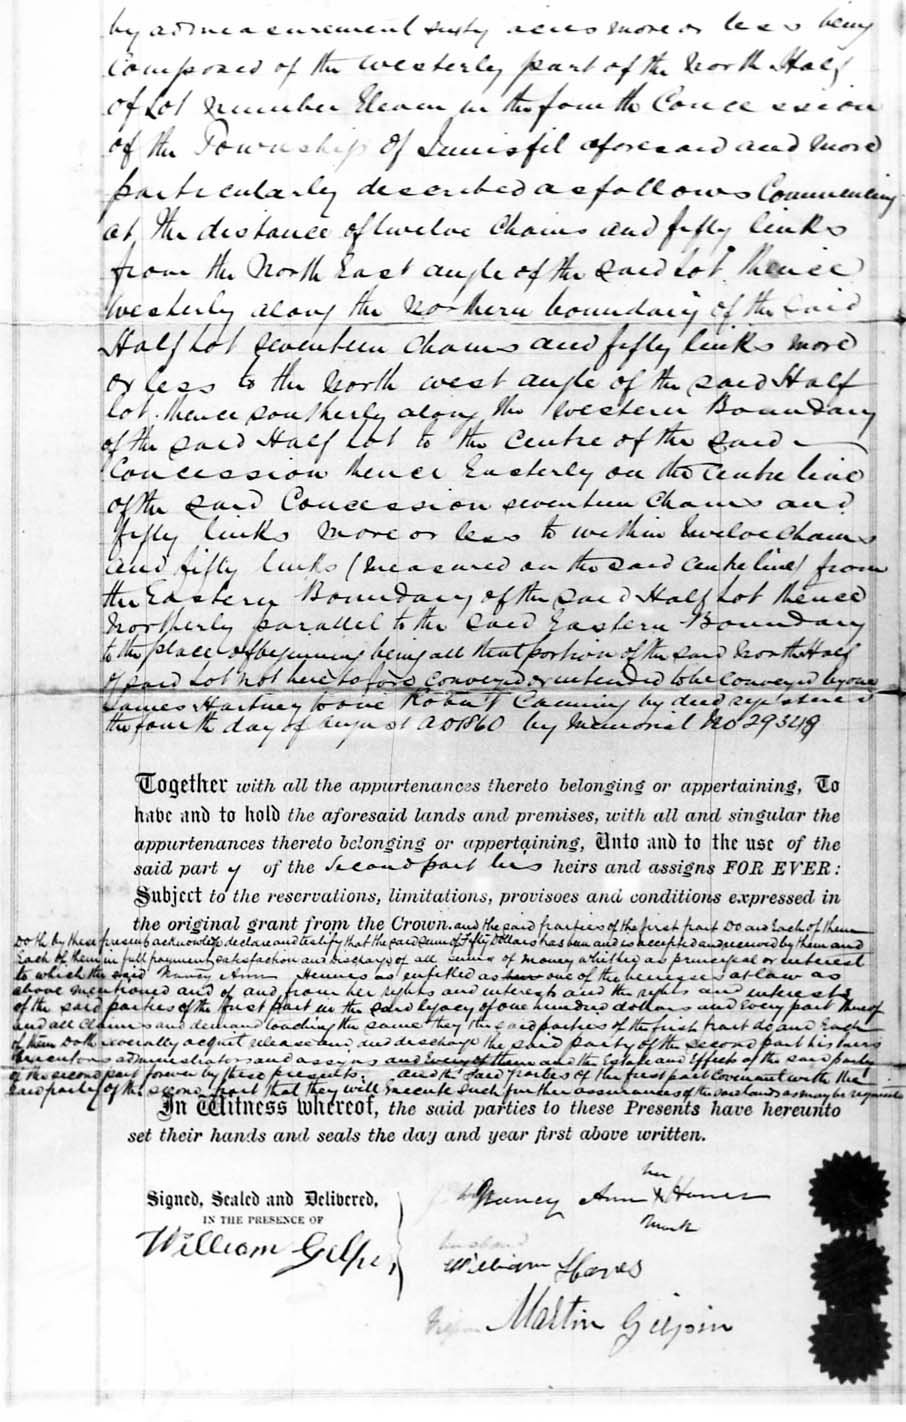 by admeasurement sixty acres more or less being
composed of the westerly part of the North Half
of Lot number Eleven in the fourth Concession
of the Township of Innisfil aforesaid and more
particularly described as follows Commencing
at the distance of twelve Chains and fifty links
from the North East angle of the said Lot thence
Westerly along the Northern boundary of the said
Half Lot seventeen Chains and fifty links more
or less to the North west angle of the said Half
lot, thence southerly along the Western Boundary
of the said Half Lot to the Centre of the said
Concession thence Easterly on the Centre line
of the said Concession seventeen Chains and
fifty links more or less to within Twelve Chains
and fifty links (measured on the said centre line) from
the Eastern Boundary of the said Half Lot thence
Northerly parallel to the said Eastern Boundary
to the place of beginning being all that portion of the said North Half
of said Lot not heretofore conveyed or intended to be conveyed by one
James Hartney to one Robert Canning by deed registered
the fourth day of August AD 1860 by Memorial No 29348
Together with all the appurtenances thereto belonging or appertaining, To
have and to hold the aforesaid lands and premises, with all and singular the
appurtenances thereto belonging or appertaining, Unto and to the use of the
said party of the Second part his heirs and assigns FOR EVER:
Subject to the reservations, limitations, provisoes and conditions expressed in
the original grant from the Crown. and the said parties of the first part Do and Each of them
Doth by these presents acknowledge declare and testify that the said Sum of Fifty Dollars has been and is accepted and received by them and
Each of them in full payment satisfaction and discharge of all sums of money whither as principal or interest
to which the said Nancy Ann is entitled as one of the heiresses at law as
above mentioned and of and from her rights and interests and the rights and interests
of the said parties of the first part in the said legacy of one hundred dollars and every part thereof
and all Claims and demand touching the same they the said parties of the first part do and Each
of them Doth severally acquit release and discharge the said party of the second part his heirs
Executors administrators and assigns and Every of them and the Estate and Effects of the said party
of the second part forever by these presents, and the said parties of the first part Covenant with the
said party of the second part that they will Execute such further assurances of the said lands as may be requisite
In Witness whereof, the said parties to these Presents have hereunto
set their hands and seals the day and year first above written.
Signed, Sealed and Delivered,
IN THE PRESENCE OF
William Gilpin
her
Nancy Ann X
mark
husband
William
Martin Gilpin